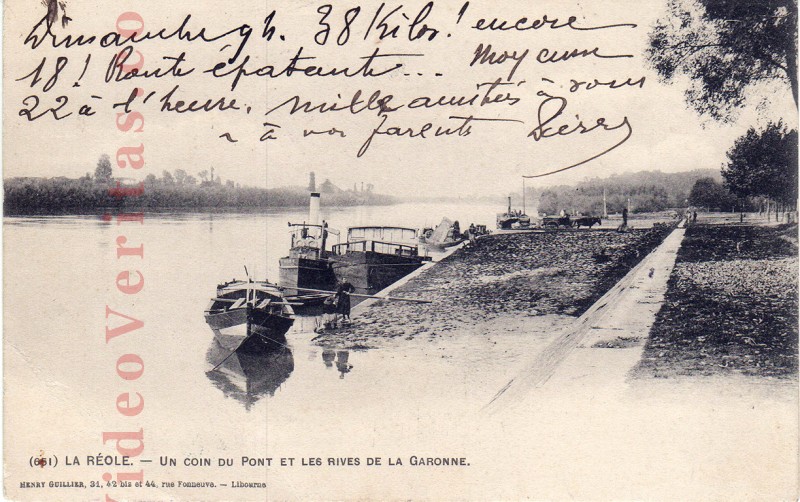 Dimanche 9h. 38 Kilos! encore
18! Route épatante... Moyenne
22 à l'heure. mille amitiés à vous
~ à vos parents Pierre
VideoVeritas.co
(661) LA RÉOLE. — UN COIN DU PONT ET LES RIVES DE LA GARONNE.
HENRY GUILLIER, 31, 42 bis et 44, rue Fonneuve. — Libourne